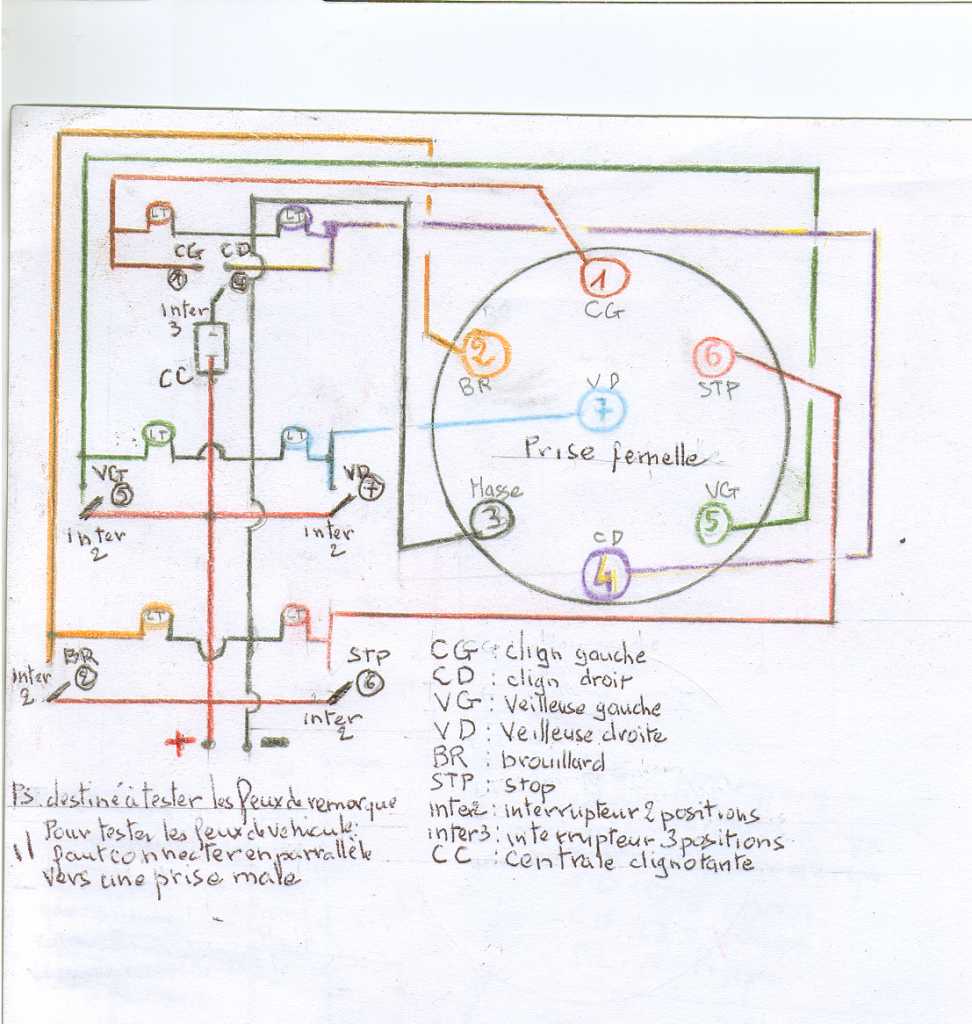 LT
LT
CG
CD
1
4
Inter
3
CC
1
CG
2
BR
6
STP
VD
7
Prise femelle
LT
LT
VG
5
VD
7
Inter
2
Inter
2
Masse
3
VG
5
CD
4
LT
LT
BR
2
STP
6
Inter
2
Inter
2
+
-
CG : clign gauche
CD : clign droit
VG : Veilleuse gauche
VD : Veilleuse droite
BR : brouillard
STP : stop
Inter2 : interrupteur 2 positions
inter3 : interrupteur 3 positions
CC : centrale clignotante
PS. destiné à tester les feux de remorque
Pour tester les feux de vehicule:
faut connecter en parrallèle
vers une prise male